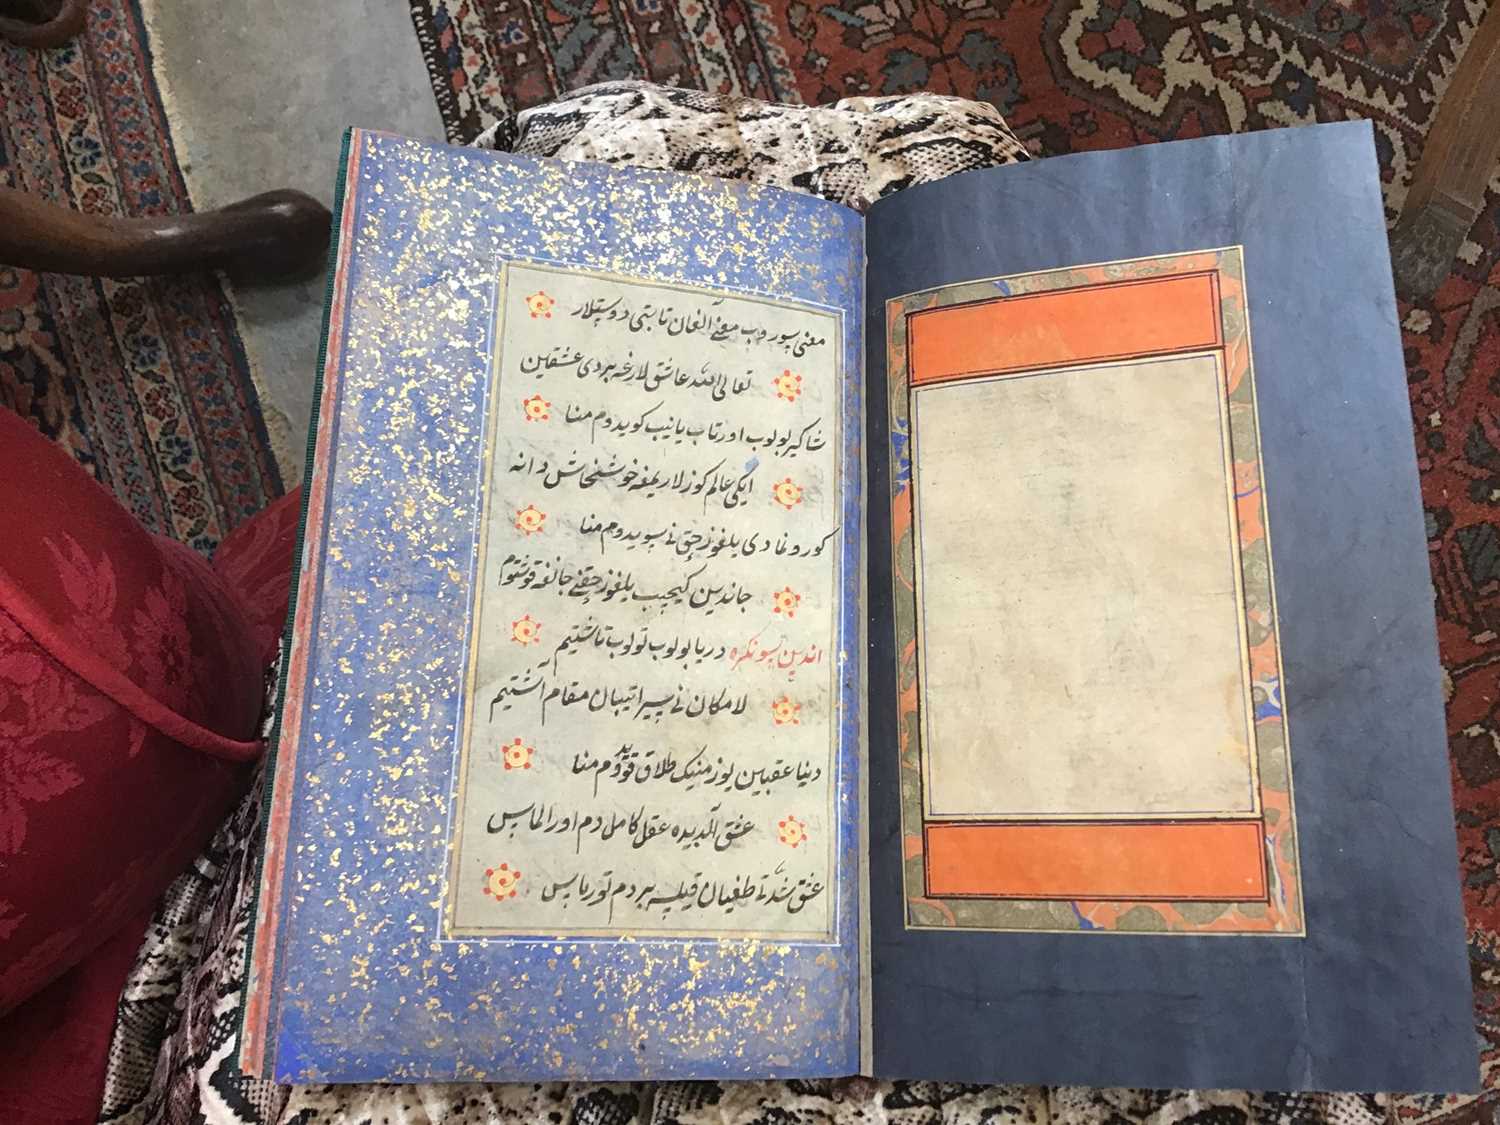 معنی سوروب معنے آلغان تابتی دوستلار
تعالی الله عاشق لارغه بردی عشقین
شاکیر بولوب اورتاب یانیب کویدوم منا
ایکی عالم کوزلاریمغه خوشخاش دانه
کورونمادی یلغوز حق نی سویدوم منا
جاندین کیجیب یلغوز حقنے جانغه قوشتوم
اندین سونکره دریا بولوب تولوب تاشتیم
لامکان نی سیر ایتیبان مقام آشتیم
دنیا عقبایین یوز مینک طلاق قویدوم منا
عشق آلدیده عقل کامل دم اورالماس
عشق شدتی طغیان قیلسه بر دم تورماس